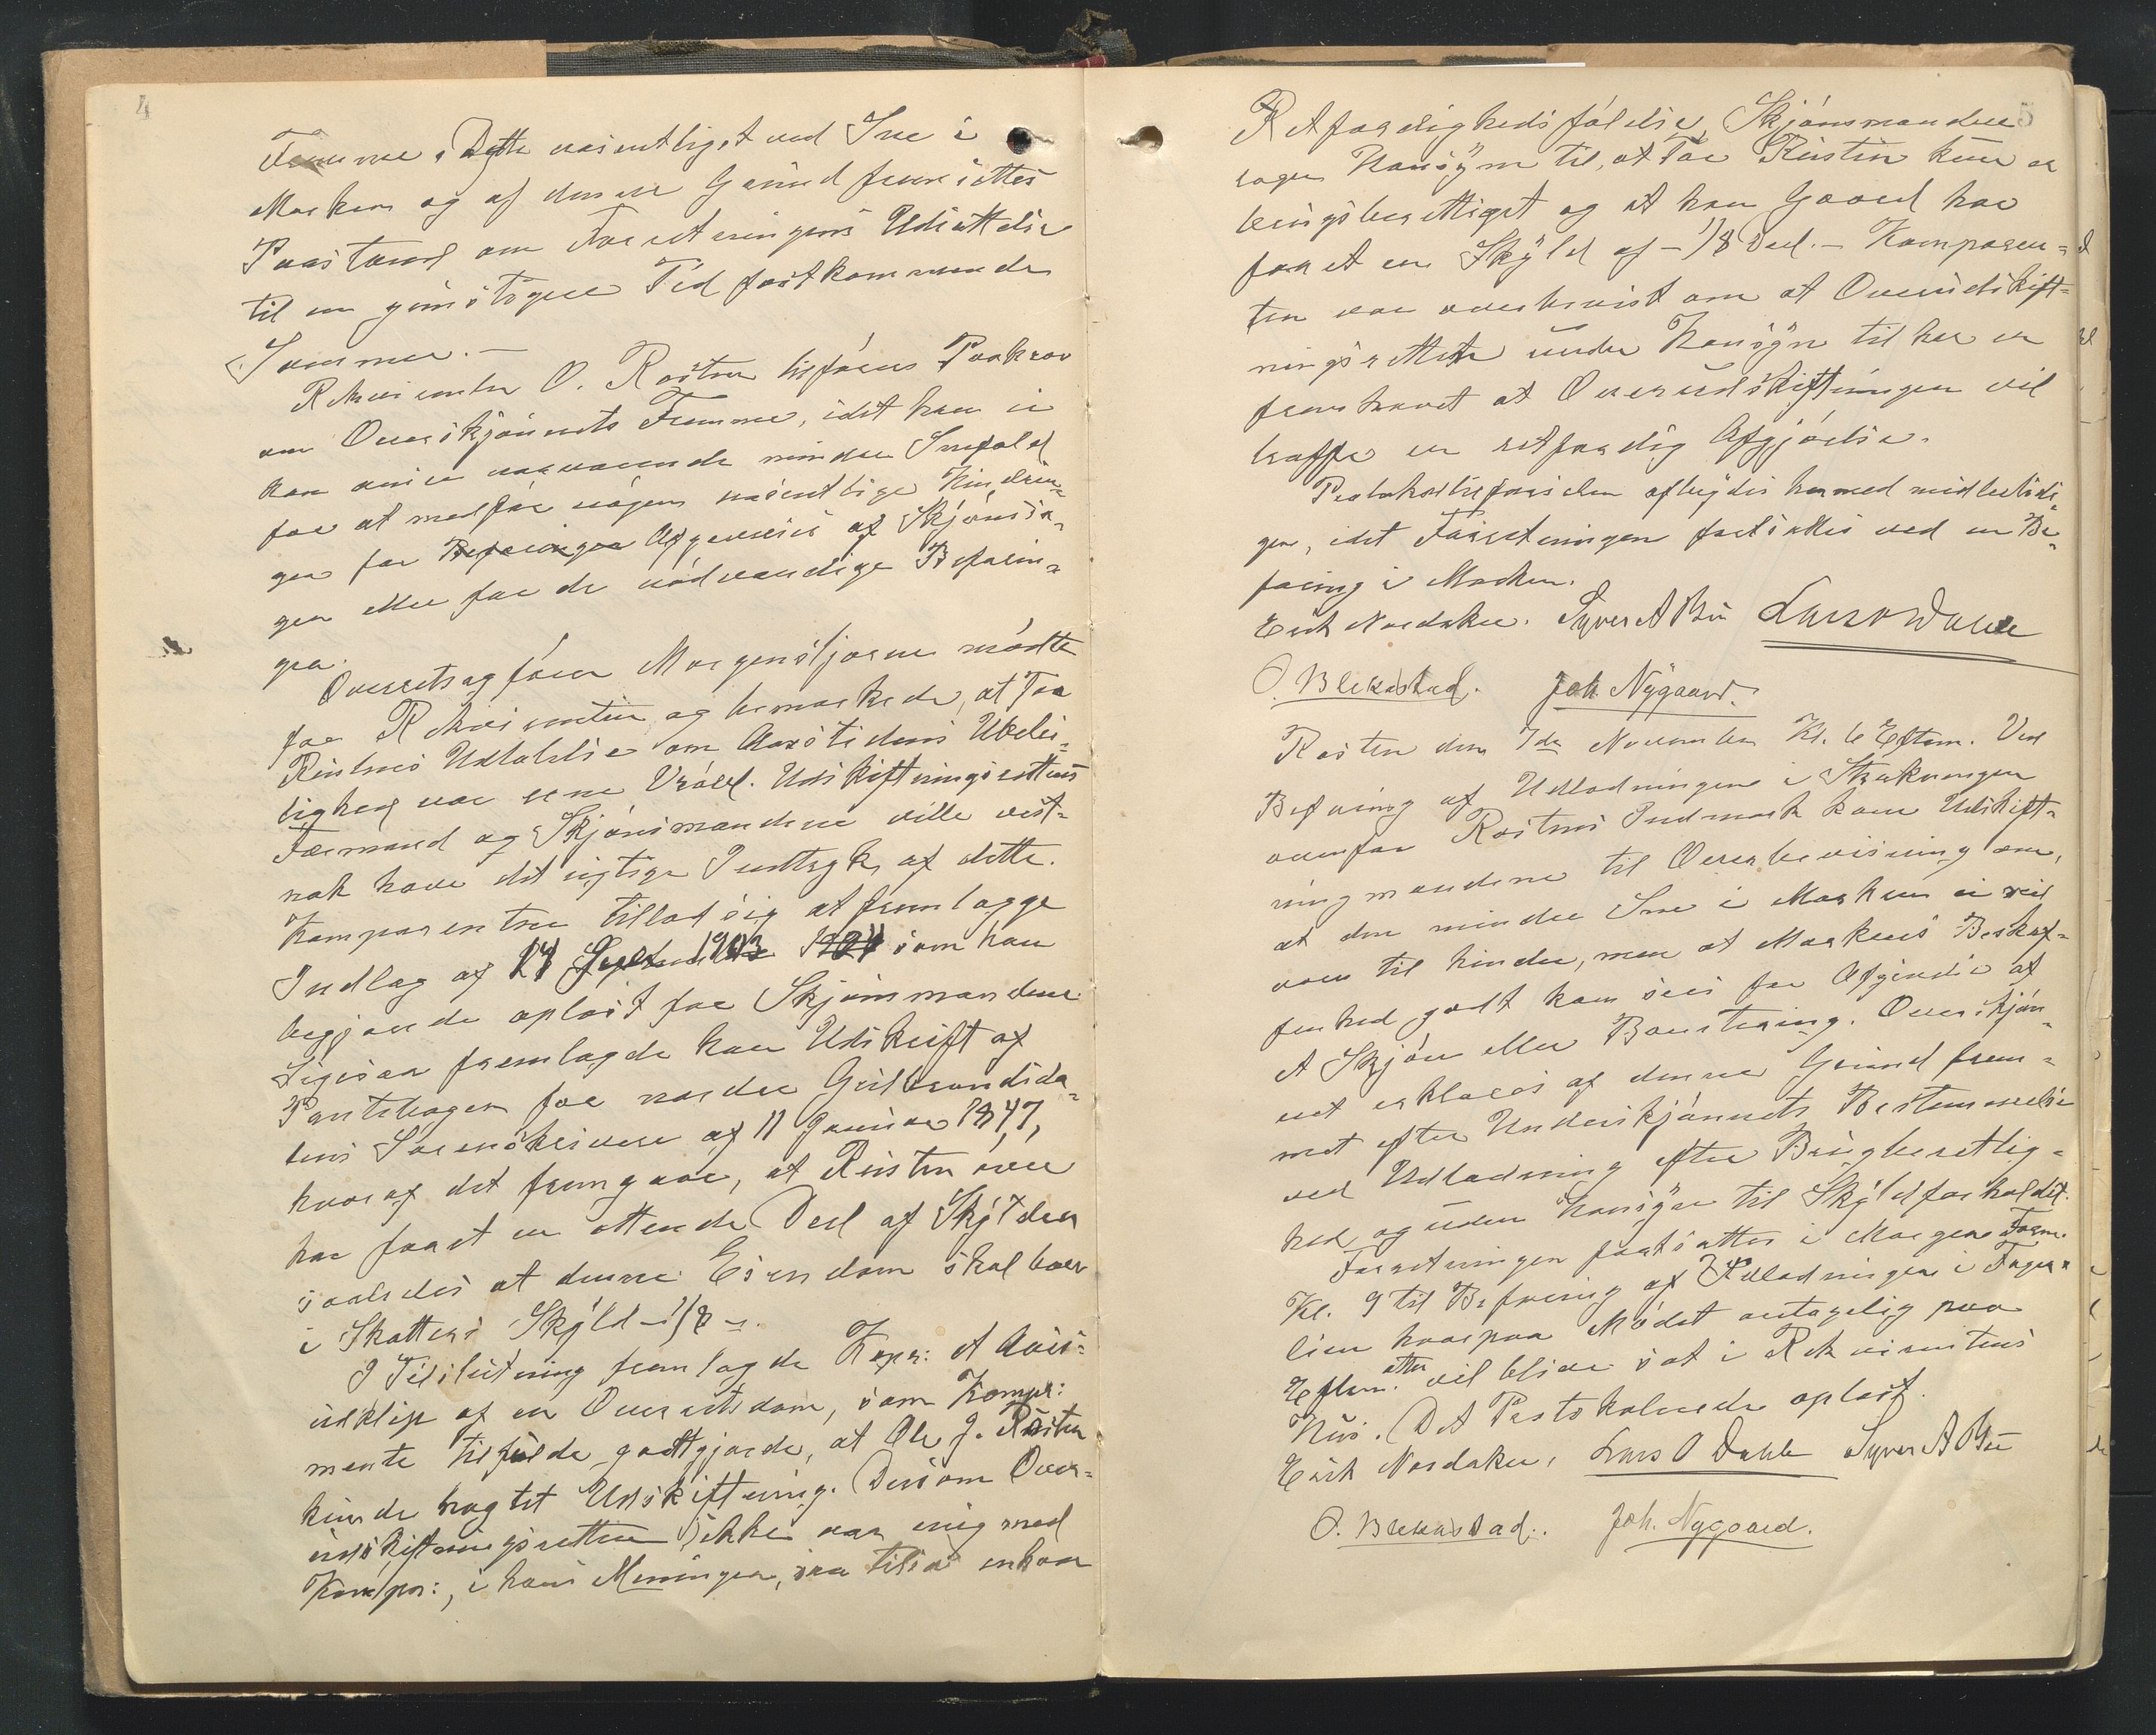 4
Fremme. Dette væsentligst ved Sne i
Marken og af denne Grund fremsattes
Paastand om Forretningens Udsættelse
til en gunstigere Tid førstkommende
Sommer. —
Rekvirenten O. Rosten tilføies Paakrav
om Overskjønnets Fremme, idet han ei
kan anse nærværende mindre Snefald
for at medføre nogen væsentlige Hindrin-
ger for Befaringen Afgivelse af Skjønsɔ-
ger eller for de nødvendige Befarin-
ger.
Overretssagfører Morgenstjerne mødte
for Rekvirenten og bemærkede, at Tor
Rustens Udtalelse om Aarstidens Ubelei-
lighed var rene Vrøvl. Udskiftningsrettens
Formand og Skjønsmændene ville vist-
nok have det rigtige Indtryk af dette.
Komparenten tillod sig at fremlægge
Indlæg af 24 Septemr 1903 1904 som han
begjærede oplæst for Skjønsmændene.
Ligesaa fremlagde han Udskrift af
Pantebogen for nordre Gudbrandsda-
lens Sorenskriveri af 11 Januar 1847,
hvoraf det fremgaar, at Rusten øvre
har faaet en ottende Deel af Skylden
saaledes at denne Eiendom skal bære
i Skattens Skyld – 1/8 –.
I Tilslutning fremlagde Kopr: et Avis-
udklip af en Overretsdom, som Kompr:
mente tilfulde godtgjorde, at Ole J. Rusten
kunde bragtet Udskiftning. Dersom Over-
udskiftningsretten ikke var enig med
Kompr:, i hans Meninger, saa tilsa enhver
5
Retfærdighedsfølelse Skjønsmændene
tage Hensyn til, at Tor Rusten kun er
bringsberettiget og at han Gaard har
faaet en Skyld af – 1/8 Deel. – Komparen-
ten var overbevist om at Overudskift-
ningsretten under Hensyn til her er
fremhævet at Overudskiftningen vil
træffe en retfærdig Afgjørelse.
Protokoltilførselen afbrydes hermed midlertidi
gen, idet Forretningen fortsættes ved en Be-
faring i Marken.
Erik Nordaker. Syver A Bu Lars O Dahle
O. Blekastad. Joh. Nygaard.
Rosten den 7de November Kl. 6 Efterm. Ved
Befaring af Udlodningen i Strækningen
ovenfor Rostens Indmark kom Udskift-
ningmændene til Overbevisning om,
at den mindre Sne i Marken ei vil
være til hinder, men at Markens Beskaf-
fenhed godt kan sees for Afgivelse af
et Skjøn eller Bonitering. Overskjøn-
net erklæres af denne Grund frem-
met efter Underskjønnets Bestemmelse
ved Udlodning efter Brugberettig-
hed og uden Hensyn til Skyldforholdet.
Forretningen fortsættes i Morgen Form.
Kl. 9 til Befaring af Udlodningen i Fager-
lien hvorpaa Mødet antagelig paa
Efterm. atter vil blive sat i Rekvirentens
Hus. Det Protokolerede oplæst.
Erik Nordaker, Lars O Dahle Syver A Bu
O. Blekastad. Joh. Nygaard.